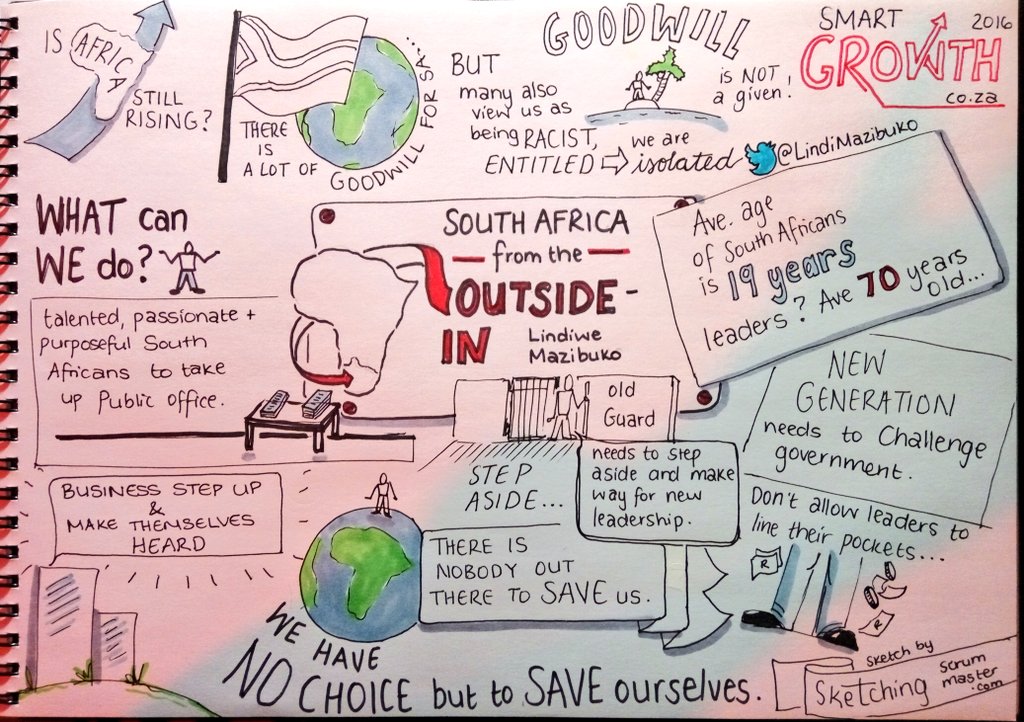 IS AFRICA
STILL
RISING?
THERE
IS
A LOT OF
GOODWILL FOR SA...
BUT
many also
view us as
being RACIST,
ENTITLED ⇨ we are
isolated
GOODWILL
is NOT
a given!
SMART 2016
GROWTH
co.za
@LindiMazibuko
WHAT can
WE do?
talented, passionate +
purposeful South
Africans to take
up Public Office.
SOUTH AFRICA
— from the —
OUTSIDE-
IN
Lindiwe
Mazibuko
Ave. age
of South Africans
is 19 years
leaders? Ave 70 years
old...
NEW
GENERATION
needs to Challenge
government.
old
Guard
STEP
ASIDE...
needs to step
aside and make
way for new
leadership.
BUSINESS STEP UP
&
MAKE THEMSELVES
HEARD
THERE IS
NOBODY OUT
THERE TO SAVE US.
Don't allow leaders to
line their pockets...
R
R
WE HAVE
NO CHOICE but to SAVE ourselves.
Sketch by
Sketching
scrum
master
.com